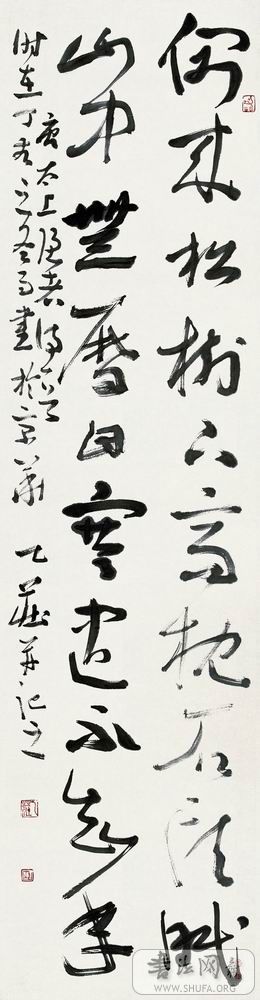 偶来松树下高枕石头眠
山中无历日寒尽不知年
唐太上隐者诗一首
时在丁酉之冬日书于京华 乙庄并记之
书法网
WWW.SHUFA.ORG